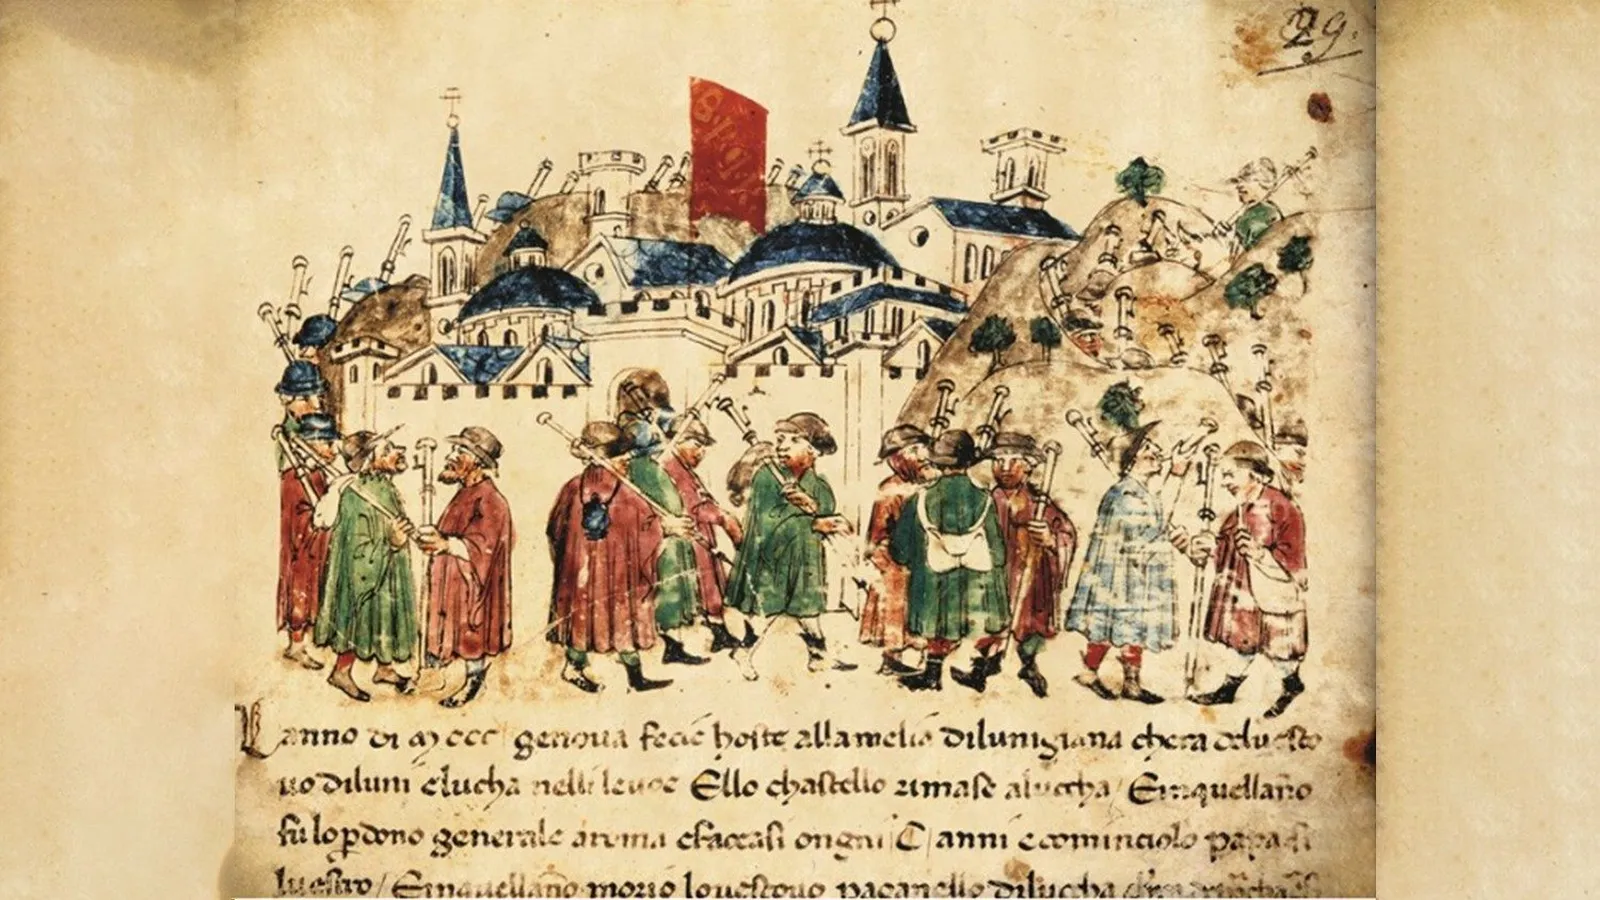 29.
S.P.Q.
Lanno di MCCC genova fecie hoste allamelia dilunigiana chera deluesco
uo diluni Elucha nelli leuoe Ello chastello rimase alucha / Einquellano
fu lo pdono generale aroma chaccasi ongni C anni e cominciolo papa
luestro / Einquellano morio louescouo paganello dilucha